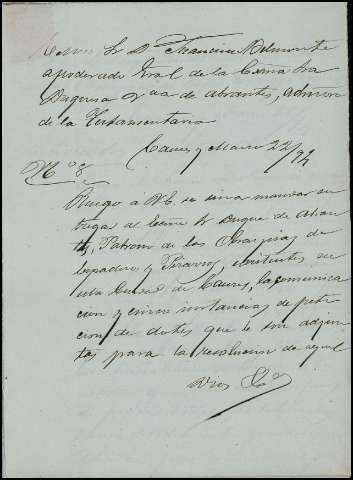 Sr Dn Francisco Belmonte
apoderado Gral de la Excma Sra
Duquesa Vda de Abrantes, admon
de la Testamentaria
Caceres y Marzo 22/94
Ruego á V.E. se sirva mandar en
tregar al Excmo Sr Duque de Abran
tes, Patron de las Obras pias de
y Pizarro, existentes en
esta Ciudad de Caceres, la comunica
cion y cinco instancias de peti
cion de dotes que le son adjun
tas para la resolucion de aquel
Dios